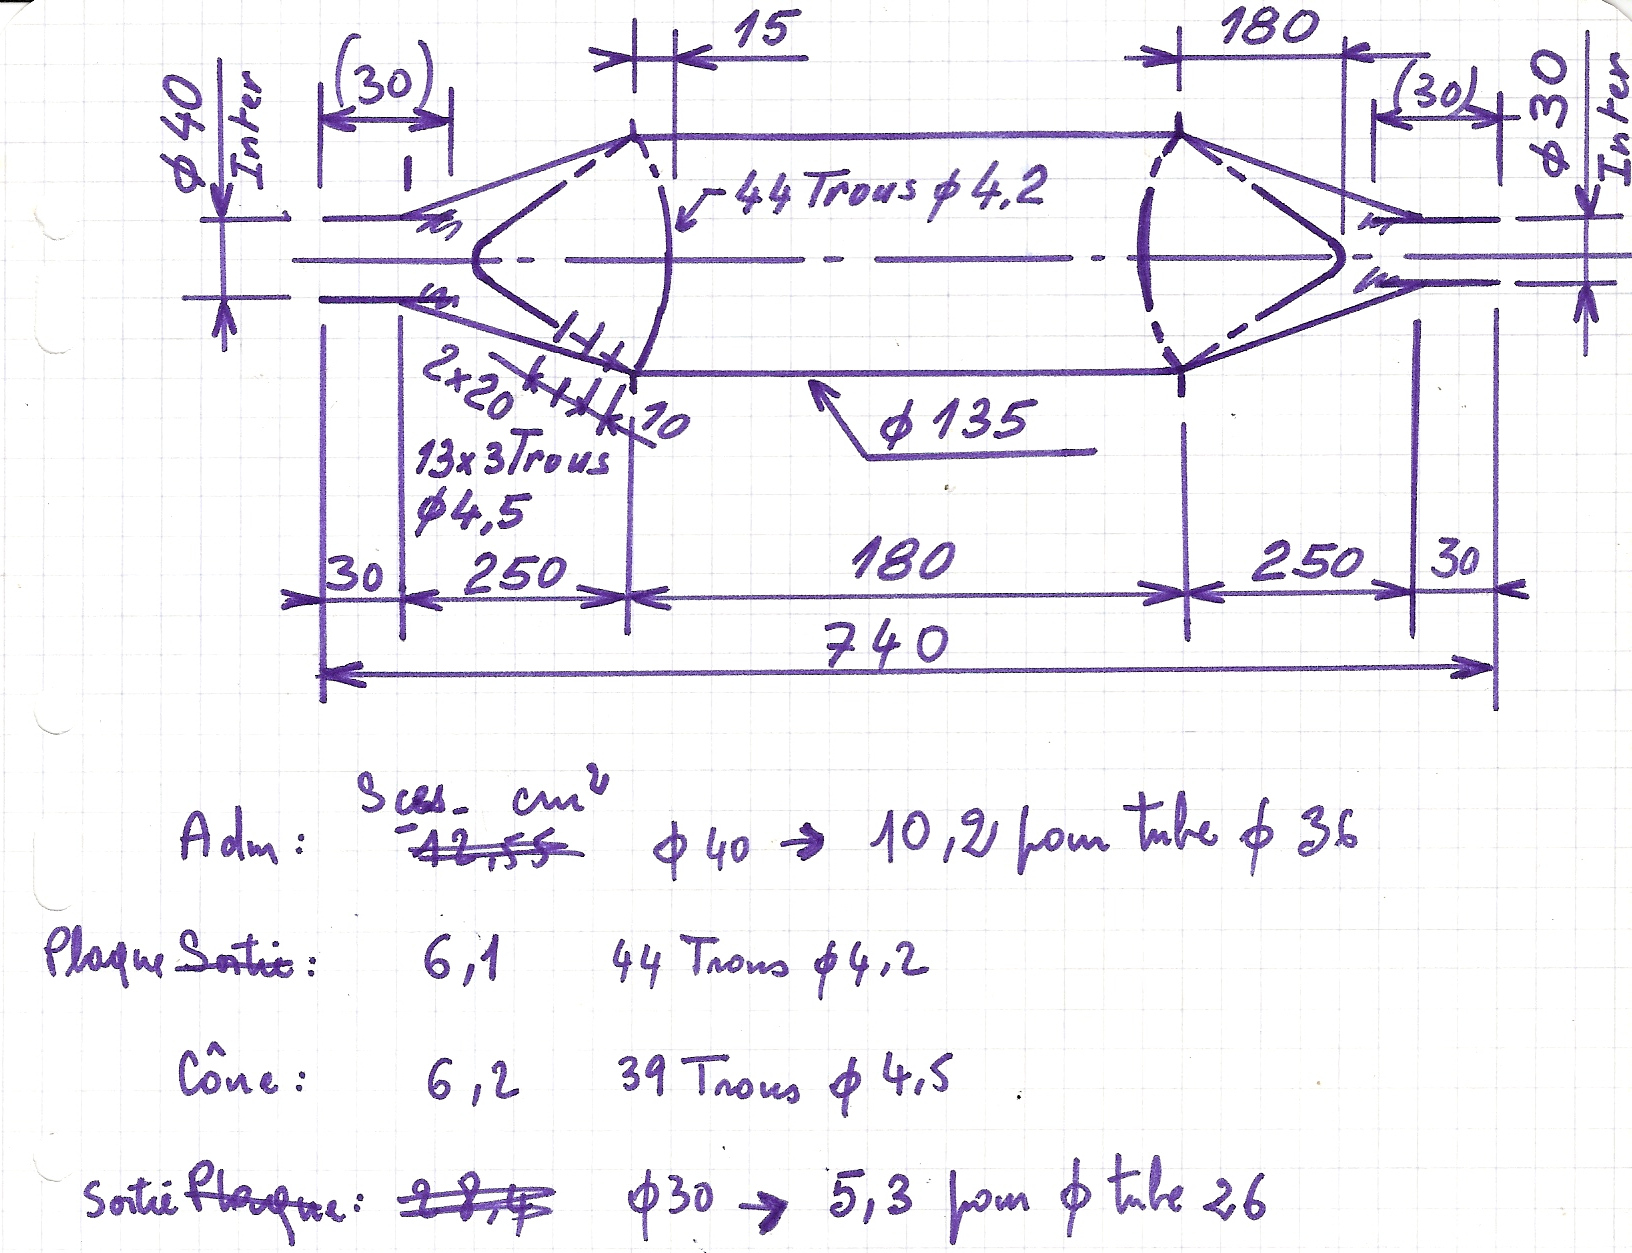 15
180
(30)
(30)
ϕ 40
Inter
ϕ 30
Inter
44 Trous ϕ 4,2
2x20
10
13x3 Trous
ϕ 4,5
ϕ 135
30
250
180
250
30
740
Sces- cm²
Adm: 12,55 ϕ 40 → 10,2 pour tube ϕ 36
Plaque Sortie: 6,1 44 Trous ϕ 4,2
Cône: 6,2 39 Trous ϕ 4,5
Sortie Plaque: 28,4 ϕ30 → 5,3 pour ϕ tube 26